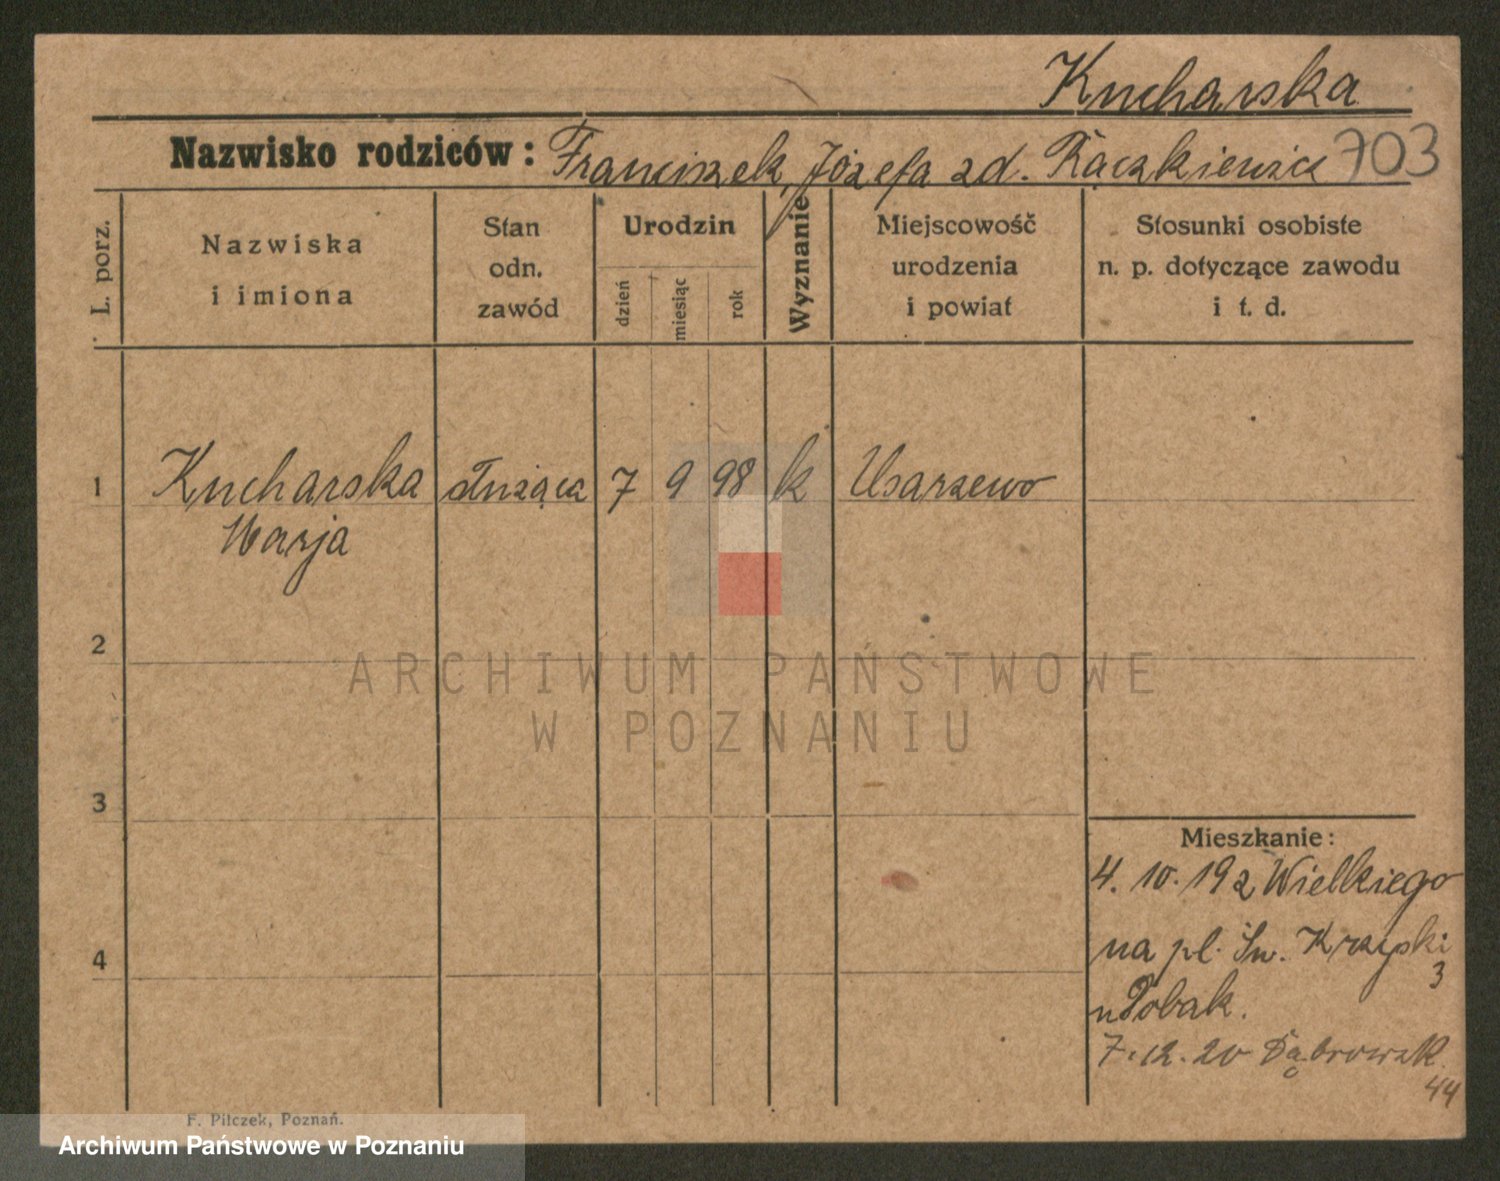 Kucharska
Nazwisko rodziców: Franciszek, Józefa zd. Rączkiewicz 703
L. porz.
Nazwiska
i imiona
Stan
odn.
zawód
Urodzin
dzień
miesiąc
rok
Wyznanie
Miejscowość
urodzenia
i powiat
Stosunki osobiste
n. p. dotyczące zawodu
i t. d.
1 Kucharska służąca 7 9 98 k Usarzewo
Marja
2
ARCHIWUM PAŃSTWOWE
W POZNANIU
3
Mieszkanie:
4. 10. 19 z Wielkiego
na pl. Św. Krzyski
3
4
u Pobak.
7. 12. 20 Dąbrowsk.
44
F. Pilczek, Poznań.
Archiwum Państwowe w Poznaniu